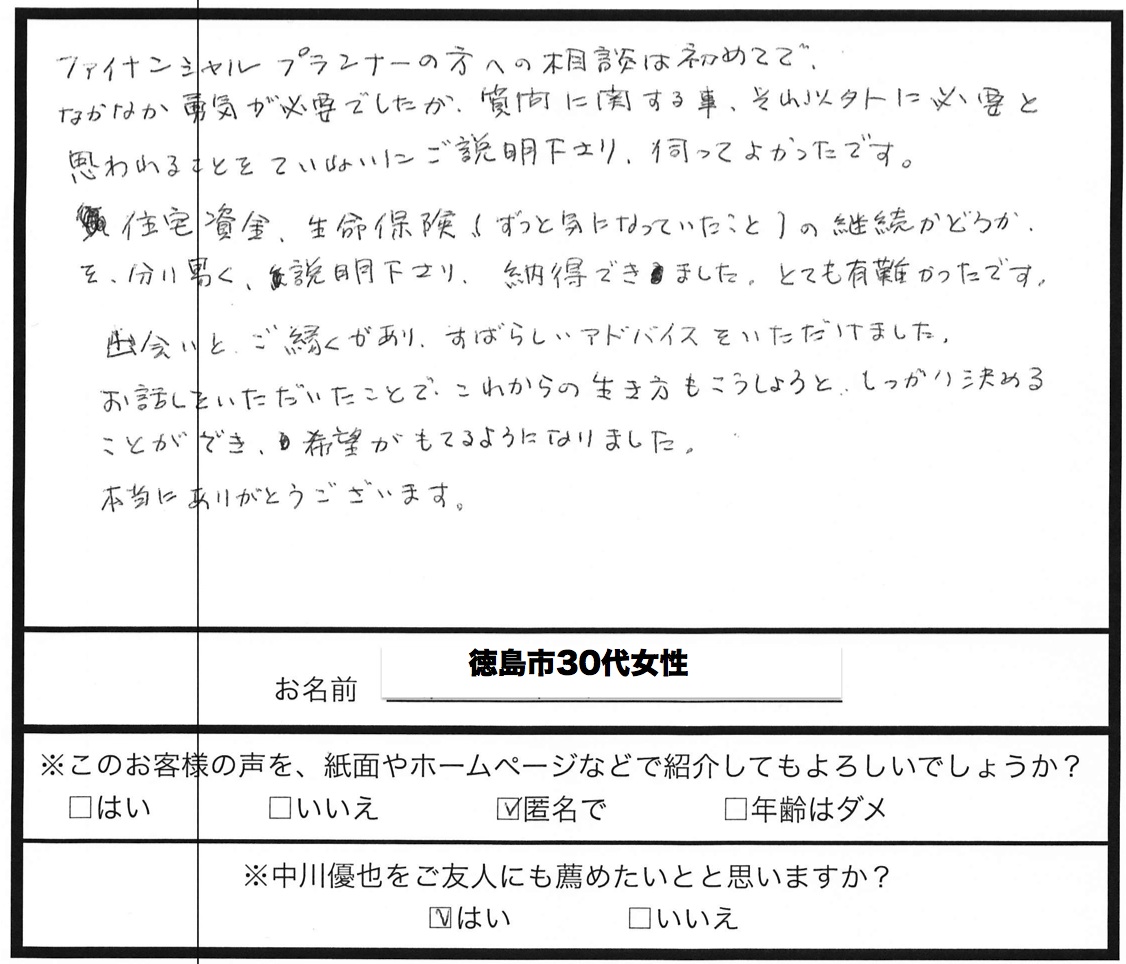 ファイナンシャルプランナーの方への相談は初めてで、
なかなか勇気が必要でしたが、質問に関する事、それ以外に必要と
思われることをていねいにご説明下さり、伺ってよかったです。
住宅資金、生命保険(ずっと気になっていたこと)の継続かどうか、
を、分り易く、説明下さり、納得できました。とても有難かったです。
出会いと、ご縁があり、すばらしいアドバイスをいただけました。
お話しをいただいたことで、これからの生き方もこうしようと、しっかり決める
ことができ、希望がもてるようになりました。
本当にありがとうございます。
お名前 徳島市30代女性
※このお客様の声を、紙面やホームページなどで紹介してもよろしいでしょうか?
□はい □いいえ ☑匿名で □年齢はダメ
※中川優也をご友人にも薦めたいとと思いますか?
☑はい □いいえ